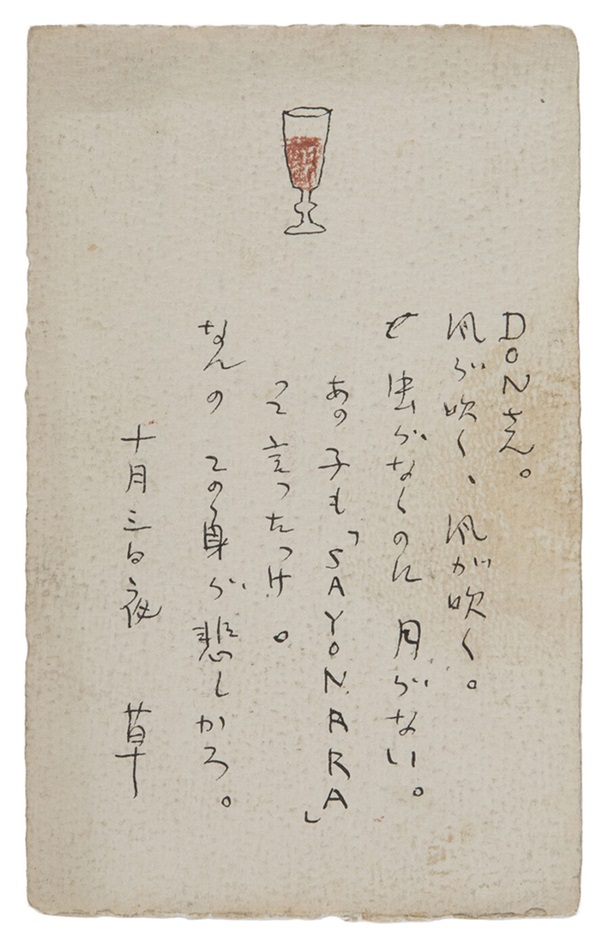 DONさん。
風が吹く、風が吹く。
ぜ 虫がなくのに 月がない。
あの子も「SAYONARA」
って言ったっけ。
なんの この身が悲しかろ。
十月三日夜 草